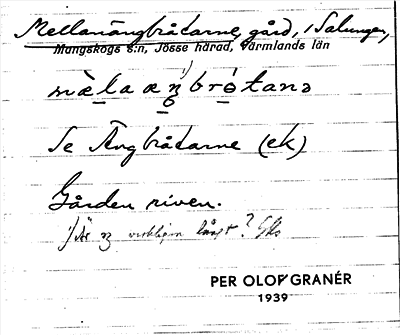 Mellanängbråtarne, gård, i Salungen,
Mangskogs s:n, Jösse härad, Värmlands län
1)
mèlaæŋbrótanə
Se Ängbråtarne (ek)
Gården riven.
1) Är ŋ verkligen långt? Gks
PER OLOF GRANÉR
1939